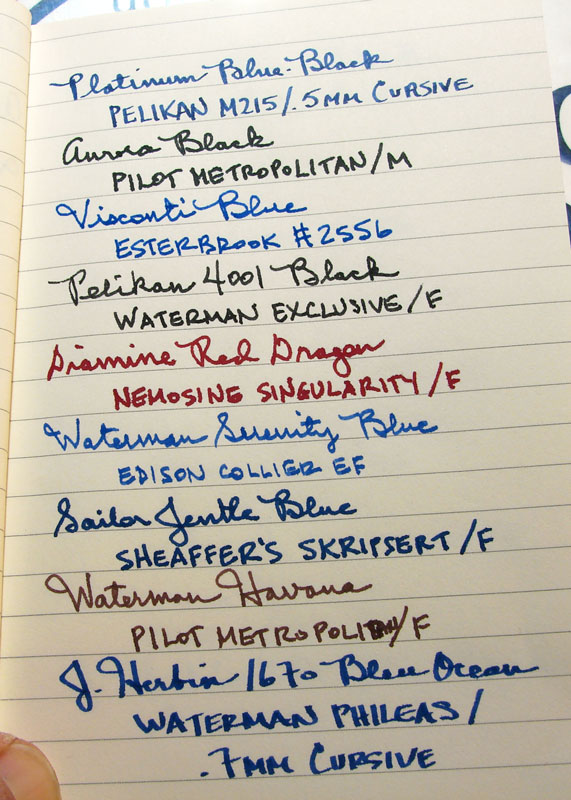 Platinum Blue-Black
PELIKAN M215/.5MM CURSIVE
Aurora Black
PILOT METROPOLITAN/M
Visconti Blue
ESTERBROOK #2556
Pelikan 4001 Black
WATERMAN EXCLUSIVE/F
Diamine Red Dragon
NEMOSINE SINGULARITY/F
Waterman Serenity Blue
EDISON COLLIER EF
Sailor Jentle Blue
SHEAFFER'S SKRIPSERT/F
Waterman Havana
PILOT METROPOLI /F
J. Herbin 1670 Bleu Ocean
WATERMAN PHILEAS/
.7MM CURSIVE